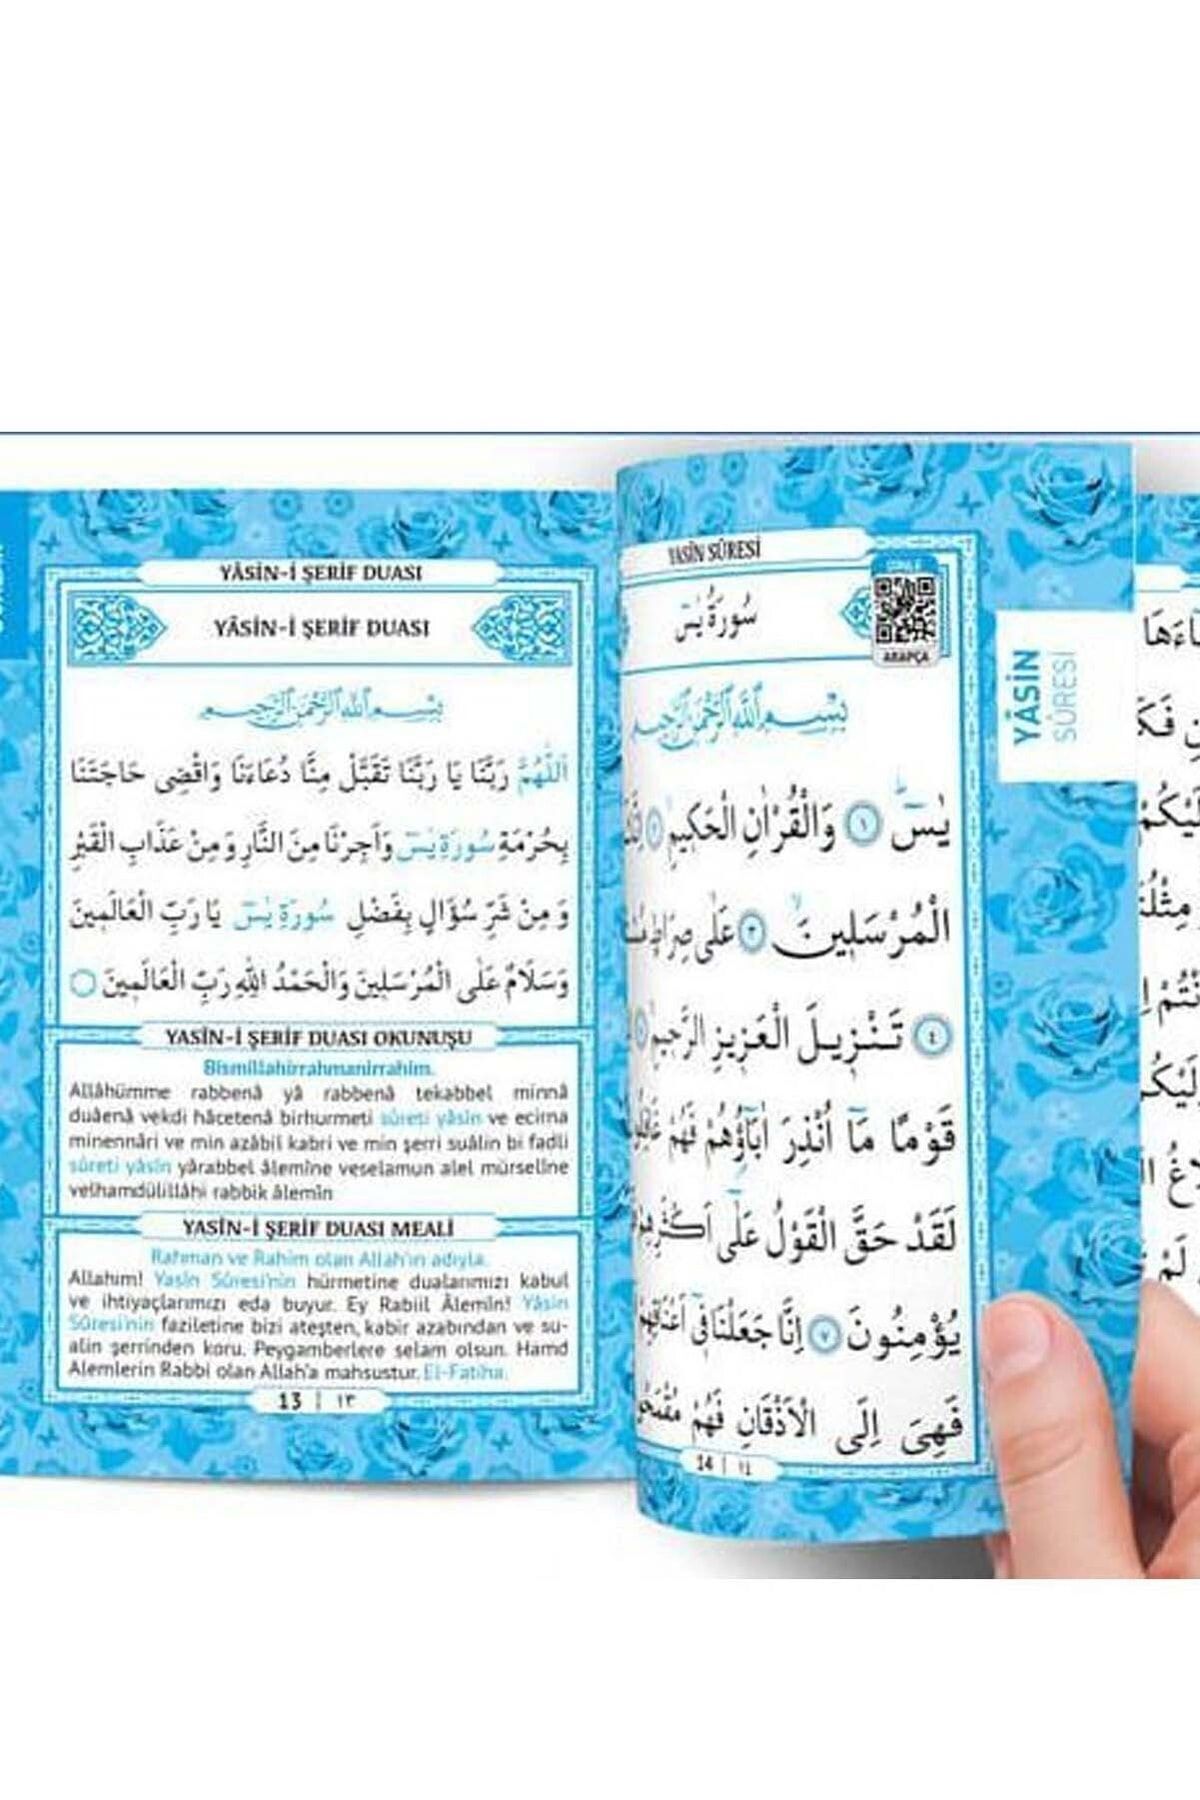 YÂSİN-İ ŞERİF DUASI
YÂSİN-İ ŞERİF DUASI
بِسْمِ اللهِ الرَّحْمٰنِ الرَّحِيمِ
اَللّٰهُمَّ رَبَّنَا يَا رَبَّنَا تَقَبَّلْ مِنَّا دُعَاءَنَا وَاقْضِى حَاجَتَنَا
بِحُرْمَةِ سُورَةِ يٰسٓ وَاَجِرْنَا مِنَ النَّارِ وَمِنْ عَذَابِ الْقَبْرِ
وَمِنْ شَرِّ سُؤَالٍ بِفَضْلِ سُورَةِ يٰسٓ يَا رَبِّ الْعَالَمِينَ
وَسَلَامٌ عَلَى الْمُرْسَلِينَ وَالْحَمْدُ لِلّٰهِ رَبِّ الْعَالَمِينَ
YASÎN-İ ŞERİF DUASI OKUNUŞU
Bismillâhirrahmanirrahim.
Allâhümme rabbenâ yâ rabbenâ tekabbel minnâ
duâenâ vekdi hâcetenâ birhurmeti sûreti yâsîn ve ecirna
minennâri ve min azâbil kabri ve min şerri suâlin bi fadli
sûreti yâsîn yârabbel âlemîne veselamun alel mürselîne
velhamdülillâhi rabbik âlemîn
YASİN-İ ŞERİF DUASI MEALİ
Rahman ve Rahim olan Allah'ın adıyla.
Allahım! Yasin Sûresi'nin hürmetine dualarımızı kabul
ve ihtiyaçlarımızı eda buyur. Ey Rabiil Âlemîn! Yâsin
Sûresi'nin faziletine bizi ateşten, kabir azabından ve su-
alin şerrinden koru. Peygamberlere selam olsun. Hamd
Alemlerin Rabbi olan Allah'a mahsustur. El-Fatiha.
13 | ١٣
YASÎN SÛRESİ
سُورَةُ يٰسٓ
DİNLE
ARAPÇA
بِسْمِ اللهِ الرَّحْمٰنِ الرَّحِيمِ
يٰسٓ ١ وَالْقُرْاٰنِ الْحَكِيمِ ٢
الْمُرْسَلِينَ ٣ عَلٰى صِرَاطٍ
٤ تَنْزِيلَ الْعَزِيزِ الرَّحِيمِ
قَوْمًا مَٓا اُنْذِرَ اٰبَٓاؤُهُمْ فَهُمْ
لَقَدْ حَقَّ الْقَوْلُ عَلٰٓى
يُؤْمِنُونَ ٧ اِنَّا جَعَلْنَا فٓى
فَهِىَ اِلَى الْاَذْقَانِ فَهُمْ
14 | ١٤
YÂSİN
SÛRESİ
لَيْكُمْ